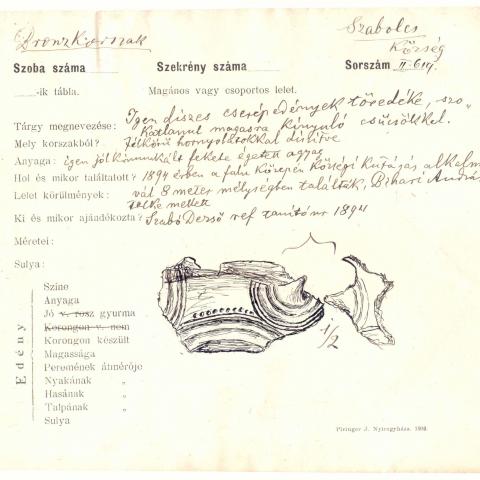 Bronzkorszak
Szabolcs
Község
Szoba száma
Szekrény száma
Sorszám II. 614.
-ik tábla.
Magános vagy csoportos lelet.
Tárgy megnevezése: Igen díszes cserépedények töredéke, szo-
katlanul magasra kinyuló csücsökkel.
Mely korszakból? félkörű hornyolatokkal díszítve
Anyaga: igen jól kimunkált fekete égetett agyag
Hol és mikor találtatott? 1894 évben a falu közepén községi kutásás alkalm
Lelet körülmények: 8 méter mélységben találták, Bihari András
telke mellett
Ki és mikor ajándékozta? Szabó Dezső ref tanító úr 1894
Méretei:
Sulya:
1/2
Edény
Színe
Anyaga
Jó v. rosz gyurma
Korongon v. nem
Korongon készült
Magassága
Peremének átmérője
Nyakának „
Hasának „
Talpának „
Sulya
Piringer J. Nyiregyháza.